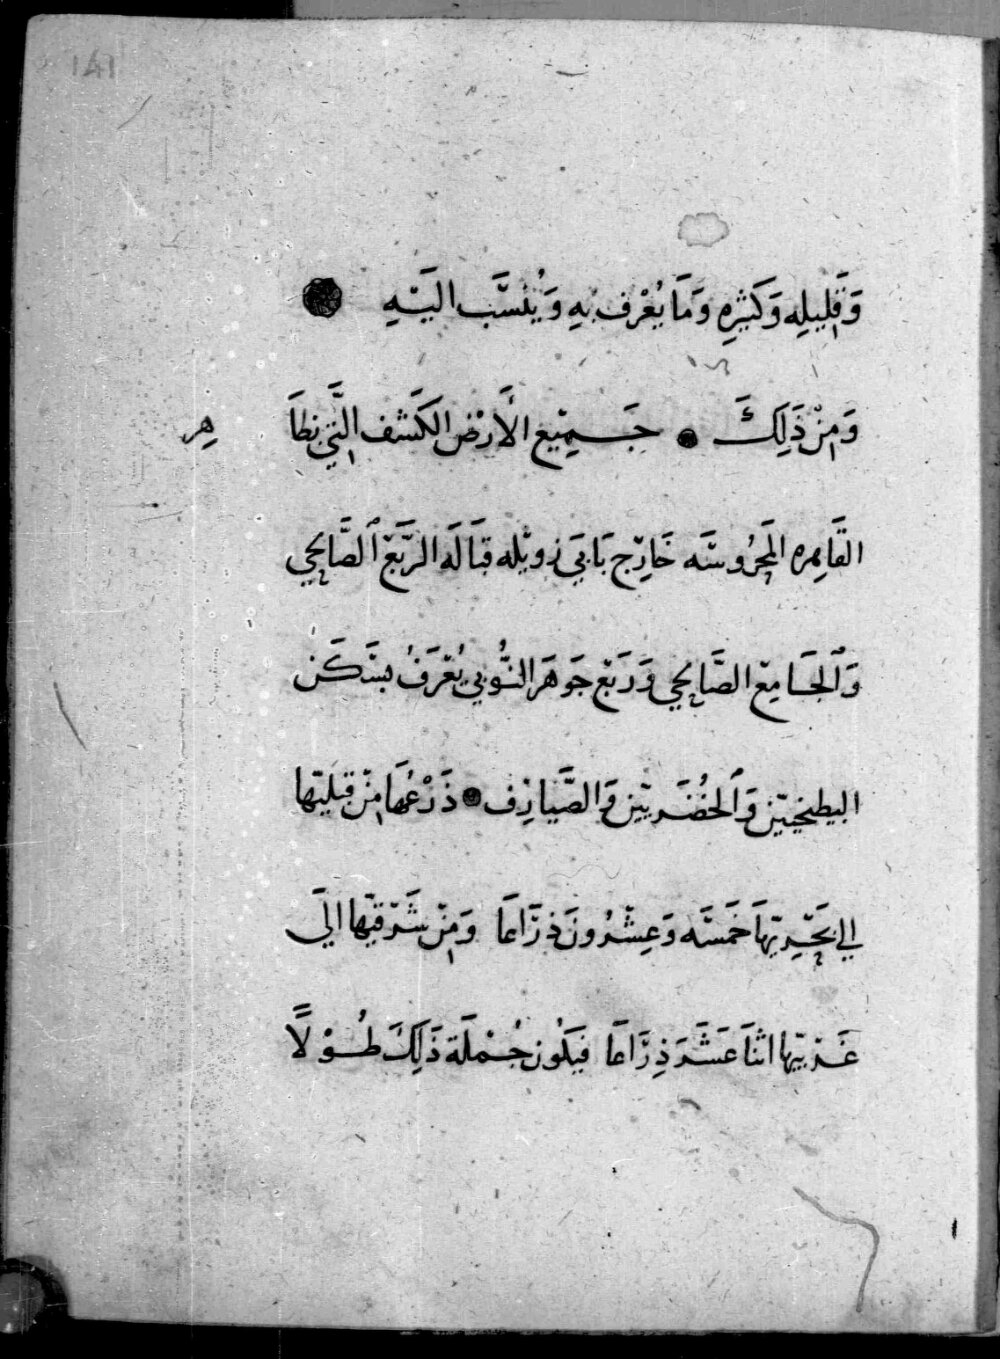 ١٨١
وَقَلِيلِه وَكَثِيرِه وَمَا يُعْرَف بِهِ وَيُنْسَب الَيْهِ
وَمِنْ ذَلِكَ جَمِيْع الأَرْض الكَشْف التَّي بِظَا
هِر
القَاهِره المَحْرُوسَه خَارِج بَابَي زويْله قبَالَه الرَّبْع الصَّالِحي
وَالجَامِع الصَّالِحي وَرَبْع جَوهَر النُّوبِي يُعْرَفُ بسَكَن
البطيخيّين وَالخُضَريّين وَالصَّيَارِف ذَرْعُهَا مِنْ قبْليّها
الي بَحْرِيّهَا خَمْسَه وَعِشْرُونَ ذِرَاعَا وَمِنْ شَرْقيّها الَي
غَرْبيّها اثنَا عَشَرَ ذِرَاعَا فَيَكُون جُمْلَة ذَلِكَ طُوْلًا